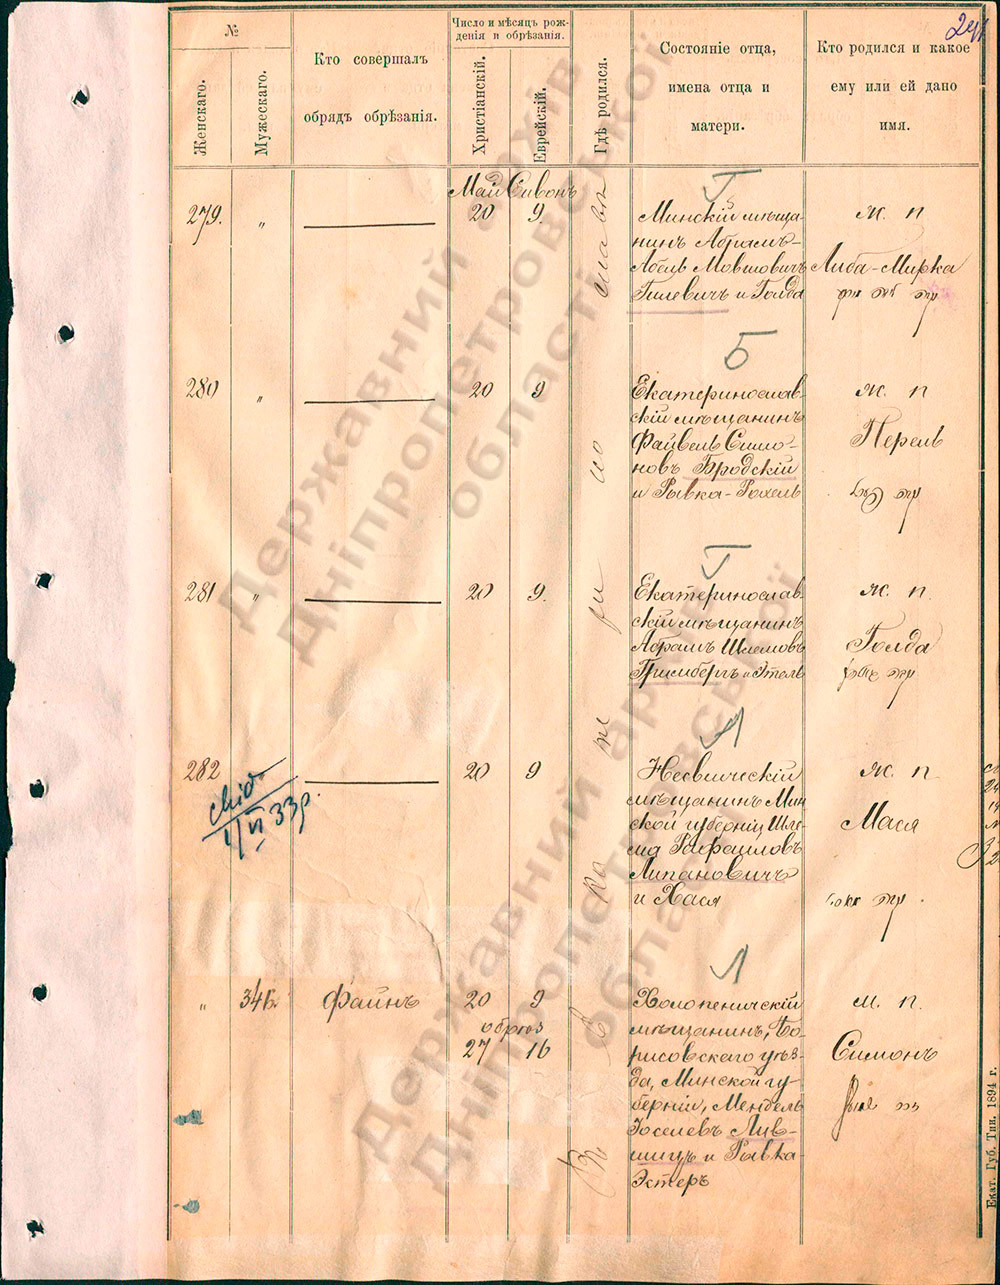 241
№
Женскаго.
Мужескаго.
Кто совершалъ
обрядъ обрѣзанія.
Число и мѣсяцъ рож-
денія и обрѣзанія.
Христіанскій.
Еврейскій.
Гдѣ родился.
Состояніе отца,
имена отца и
матери.
Кто родился и какое
ему или ей дано
имя.
Май Сивонъ
Г
279. „ 20 9.
Минскій мѣща-
нинъ Абрамъ-
Абель Мовшовичъ
Гилевичъ и Голда
ж. п
Либа-Мирка
Б
280 „ 20 9
Екатеринослав-
скій мѣщанинъ
Файвель Симо-
новъ Бродскій
и Рывка-Рохель
ж. п
Перель
Г
281 „ 20 9.
Екатеринослав-
скій мѣщанинъ
Абрамъ Шлемовъ
Гринбергъ и Этель
ж. п.
Голда
282 20 9
1/VI 33 р.
Несвижскій
мѣщанинъ Мин-
ской губерніи Шле-
ма Рафаиловъ
Липановичъ
и Хася
ж. п
Мася
Л
„ 346. Файнъ 20 9
обрѣз
27 16
Холопеничскій
мѣщанинъ, Бо-
рисовскаго уѣз-
да, Минской гу-
берніи, Мендель
Іоселевъ Лив-
шицъ и Рывка-
Эстеръ
м. п.
Симонъ
Екат. Губ. Тип. 1894 г.
Державний архів
Дніпропетровської
області
Державний архів
Дніпропетровської
області